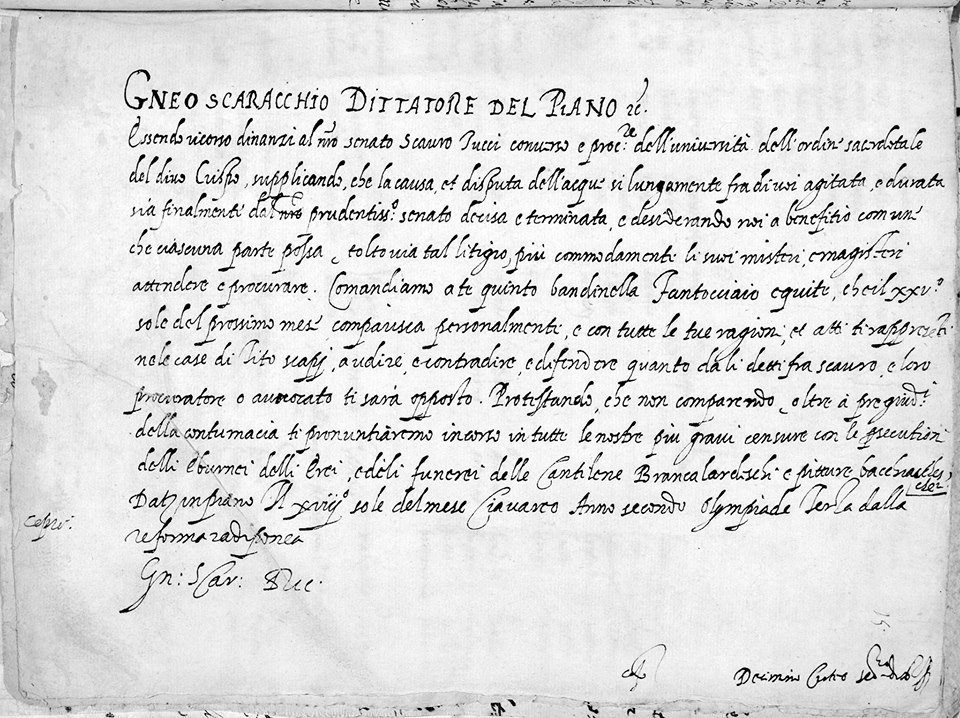 GNEO SCARACCHIO DITTATORE DEL PIANO &c.
Essendo ricorso dinanzi al nro senato Scauro Tucci converso e proc.re dell'università dell'ordine sacerdotale
del divo Crispo, supplicando, che la causa, et disputa dell'acque si lungamente fra di voi agitata, e durata
sia finalmente dal nro prudentiss.o senato decisa e terminata, e desiderando noi a benefitio comune
che ciascuna parte possa, tolto via tal litigio, più commodamente li suoi misteri, e magisteri
attendere e procurare. Comandiamo a te quinto bandinella Fantocciaio equite, che il xxv.o
sole del prossimo mese comparisca personalmente, e con tutte le tue ragioni, et atti ti rappresenti
nele case di Tito scapij, a udire, e contradire, e difendere quanto da li detti fra scauro, e loro
procuratore o avvocato ti sarà opposto. Protestando, che non comparendo, oltre à pregiud.i
della contumacia ti pronuntiaremo incorso in tutte le nostre più gravi censure con le
delli Eburnei delli Erei, e deli funerei delle Cantilene Brancaleoneschi e pitture
Dat in piano Il xviiij.o sole del mese Ciavarco Anno secondo olympiade Terza dalla
reforma
Gn: Scar: Dic.
Decimio